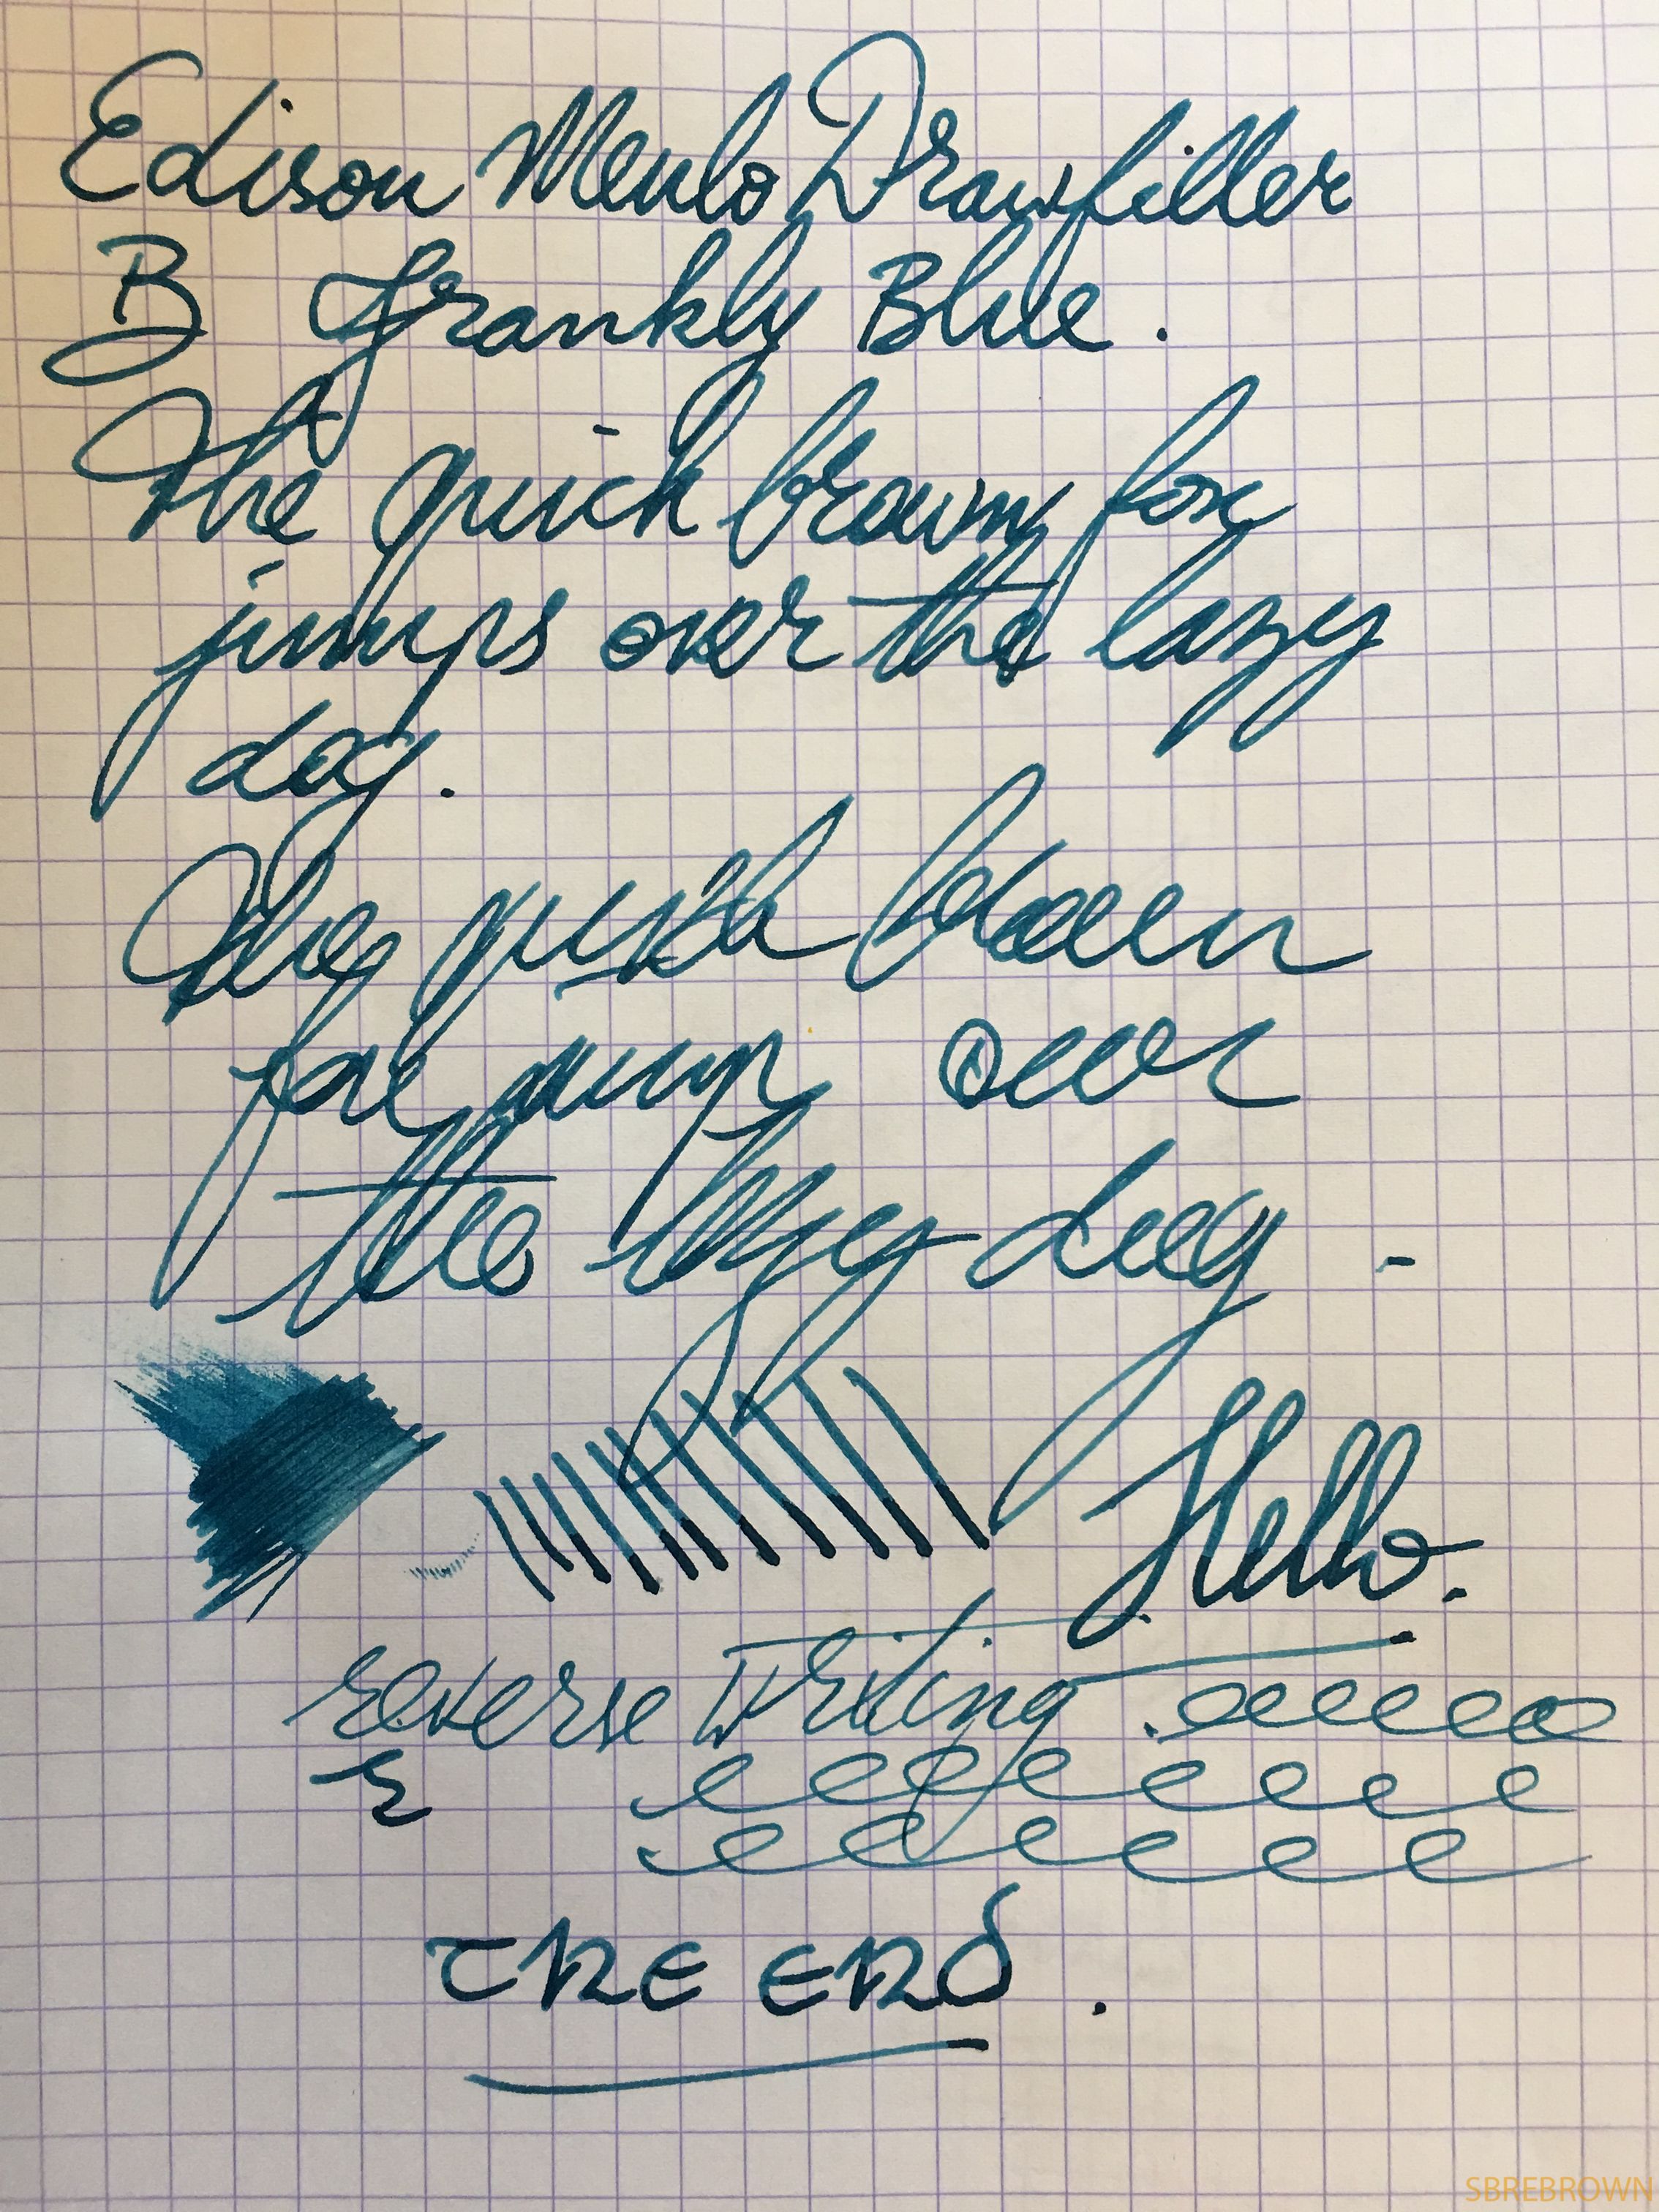 Edison Menlo Drawfiller
B Frankly Blue.
The quick brown fox
jumps over the lazy
dog.
The quick brown
fox jumps over
the lazy dog -
Hello.
reverse writing.
THE END.
SBREBROWN